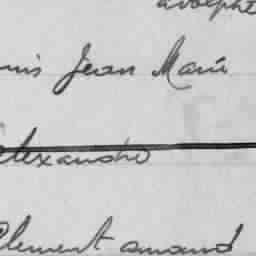 adolphe
Jean Marie
alexandre
Clement amand